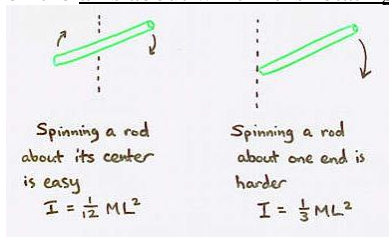 Spinning a rod
about its center
is easy
I = 1/12 ML²
Spinning a rod
about one end is
harder
I = 1/3 ML²